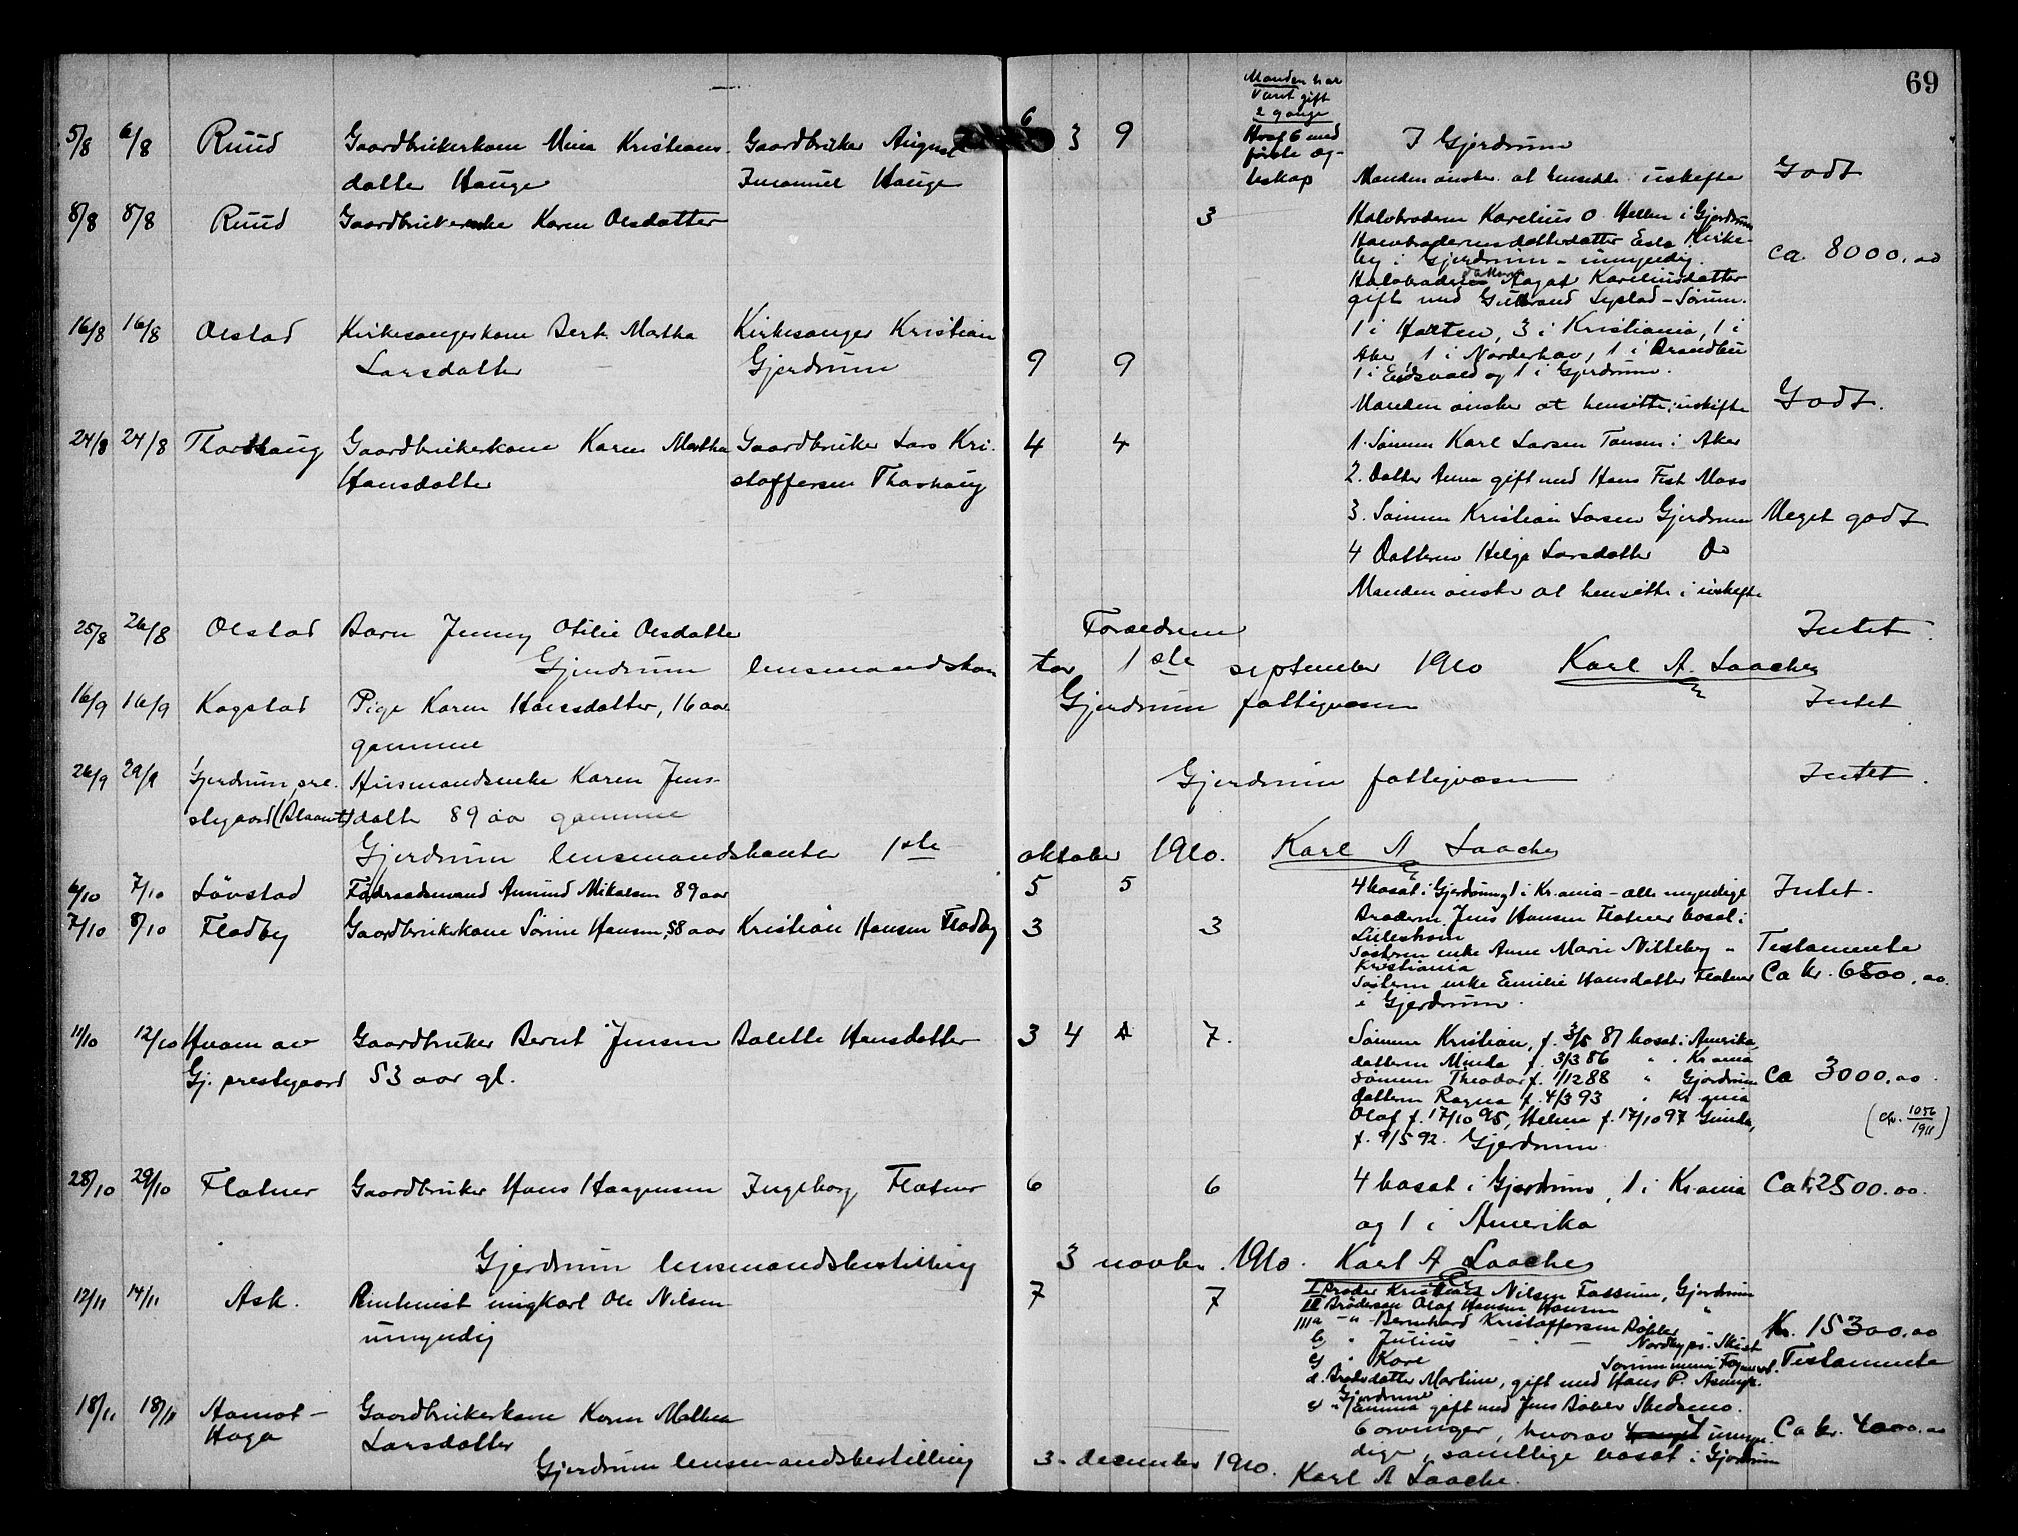 69
5/8 6/8 Ruud Gaardbrukerkone Mina Kristians- Gaardbruker August 6 3 9 Manden har været gift 2 gange Hvof 6 med første eg- I Gjerdrum
datter Hauge Imanuel Hauge teskap Manden ønsker at hensidde i uskifte Godt
8/8 8/8 Ruud Gaardbrukerenke Karen Olsdatter 3 Halvbroderen Karelius O. Hellen i Gjerdrum
Halvbroderens datterdatter Esla Kirke-
by i Gjerdrum – umyndig. Ca. 8000.00
Halvbroderens datteren Aagot Kareliusdatter
gift med Gulbrand Lystad – Sørum.
16/8 16/8 Olstad Kirkesangerkone Bert. Martha Kirkesanger Kristian 1 i Holten, 3 i Kristiania, 1 i
Larsdatter Gjerdrum 9 9 Aker, 1 i Norderhov, 1 i Brandbu
1 i Eidsvold og 1 i Gjerdrum.
Manden ønsker at hensitte i uskifte Godt.
24/8 24/8 Thorshaug Gaardbrukerkone Karen Martha Gaardbruker Lars Kri- 4 4 1. Sønnen Karl Larsen Tonsen i Aker
Hansdatter stoffersen Thorhaug 2. Datter Anna gift med Hans Fish Moss
3. Sønnen Kristian Larsen Gjerdrum Meget godt
4 Datteren Helga Larsdatter Do
Manden ønske at hensitte i uskifte
25/8 26/8 Olstad Barn Jenny Otilie Olsdatter Forældrene Intet.
Gjerdrum lensmandskon tor 1ste september 1910 Karl A. Laache
16/9 16/9 Kogstad Pige Karen Hansdatter, 16 aar Gjerdrum fattigvæsen Intet
gammel
26/9 29/9 Gjerdrum pre- Husmandsenke Karen Jens- Gjerdrum fattigvæsen Intet.
stegaard datter 89 aar gammel
Gjerdrum lensmandskontor 1ste oktober 1910. Karl A Laache
6/10 7/10 Løvstad Føderaadsmand Amund Mikalsen 89 aar 5 5 4 bosat i Gjerdrum, 1 i Kr.ania – alle myndige Intet.
7/10 8/10 Fladby Gaardbrukerkone Sørine Hansen, 58 aar Kristian Hansen Fladby 3 3 Broderen Jens Hansen Flatner bosat i
Lillestrøm
Søsteren enke Anne Marie Nitteberg " Testamente
Kristiania
Søsteren enke Emilie Hansdatter Flatner Ca kr. 6500.00.
i Gjerdrum.
11/10 12/10 Hvam av Gaardbruker Bernt Jensen Bolette Hansdatter 3 4 7. Sønnen Kristian, f. 3/5 87 bosat i Amerika,
datteren Minda f. 3/3 86 " . Kr.ania
Gj. prestegaard 53 aar gl. Sønnen Theodor f. 1/12 88 " Gjerdrum Ca 3000.00.
datteren Ragna f. 4/3 93 " Kr.ania
Olaf f. 17/10 95, Helene f. 17/10 97 Gunda, (cfr. 1056/1911)
f. 9/5 92. Gjerdrum.
28/10 29/10 Flatner Gaardbruker Hans Haagensen Ingeborg Flatner 6 6 4 bosat i Gjerdrum, 1 i Kr.ania Ca kr 2500.00.
og 1 i Amerika
Gjerdrum lensmandsbestilling 3 novbr. 1910. Karl A Laache
12/11 14/11 Ask. Rentenist ungkarl Ole Nilsen 7 7 I Broder Kristians Nilsen Fossum, Gjerdrum
umyndig II Brodersøn Olaf Hansen Hansen "
IIIa –"– Bernhard Kristoffersen Døhler Kr. 15300.00
b " Julius – " – Nordby pr. Skist
c " Kare Sørum Testamente
d. Brodedatter Martine, gift med Hans P. Asmyr.
Gjerdrum
e " Emma gift med Jens Bøler Skedsmo.
18/11 18/11 Aamot – Gaardbrukerkone Karen Mathea 6 arvinger, hvorav 4 umyn- Ca kr. 4000.00
Haga Larsdatter dige, samtlige bosat i Gjerdrum
Gjerdrum lensmandsbestilling 3. december 1910. Karl A Laache.